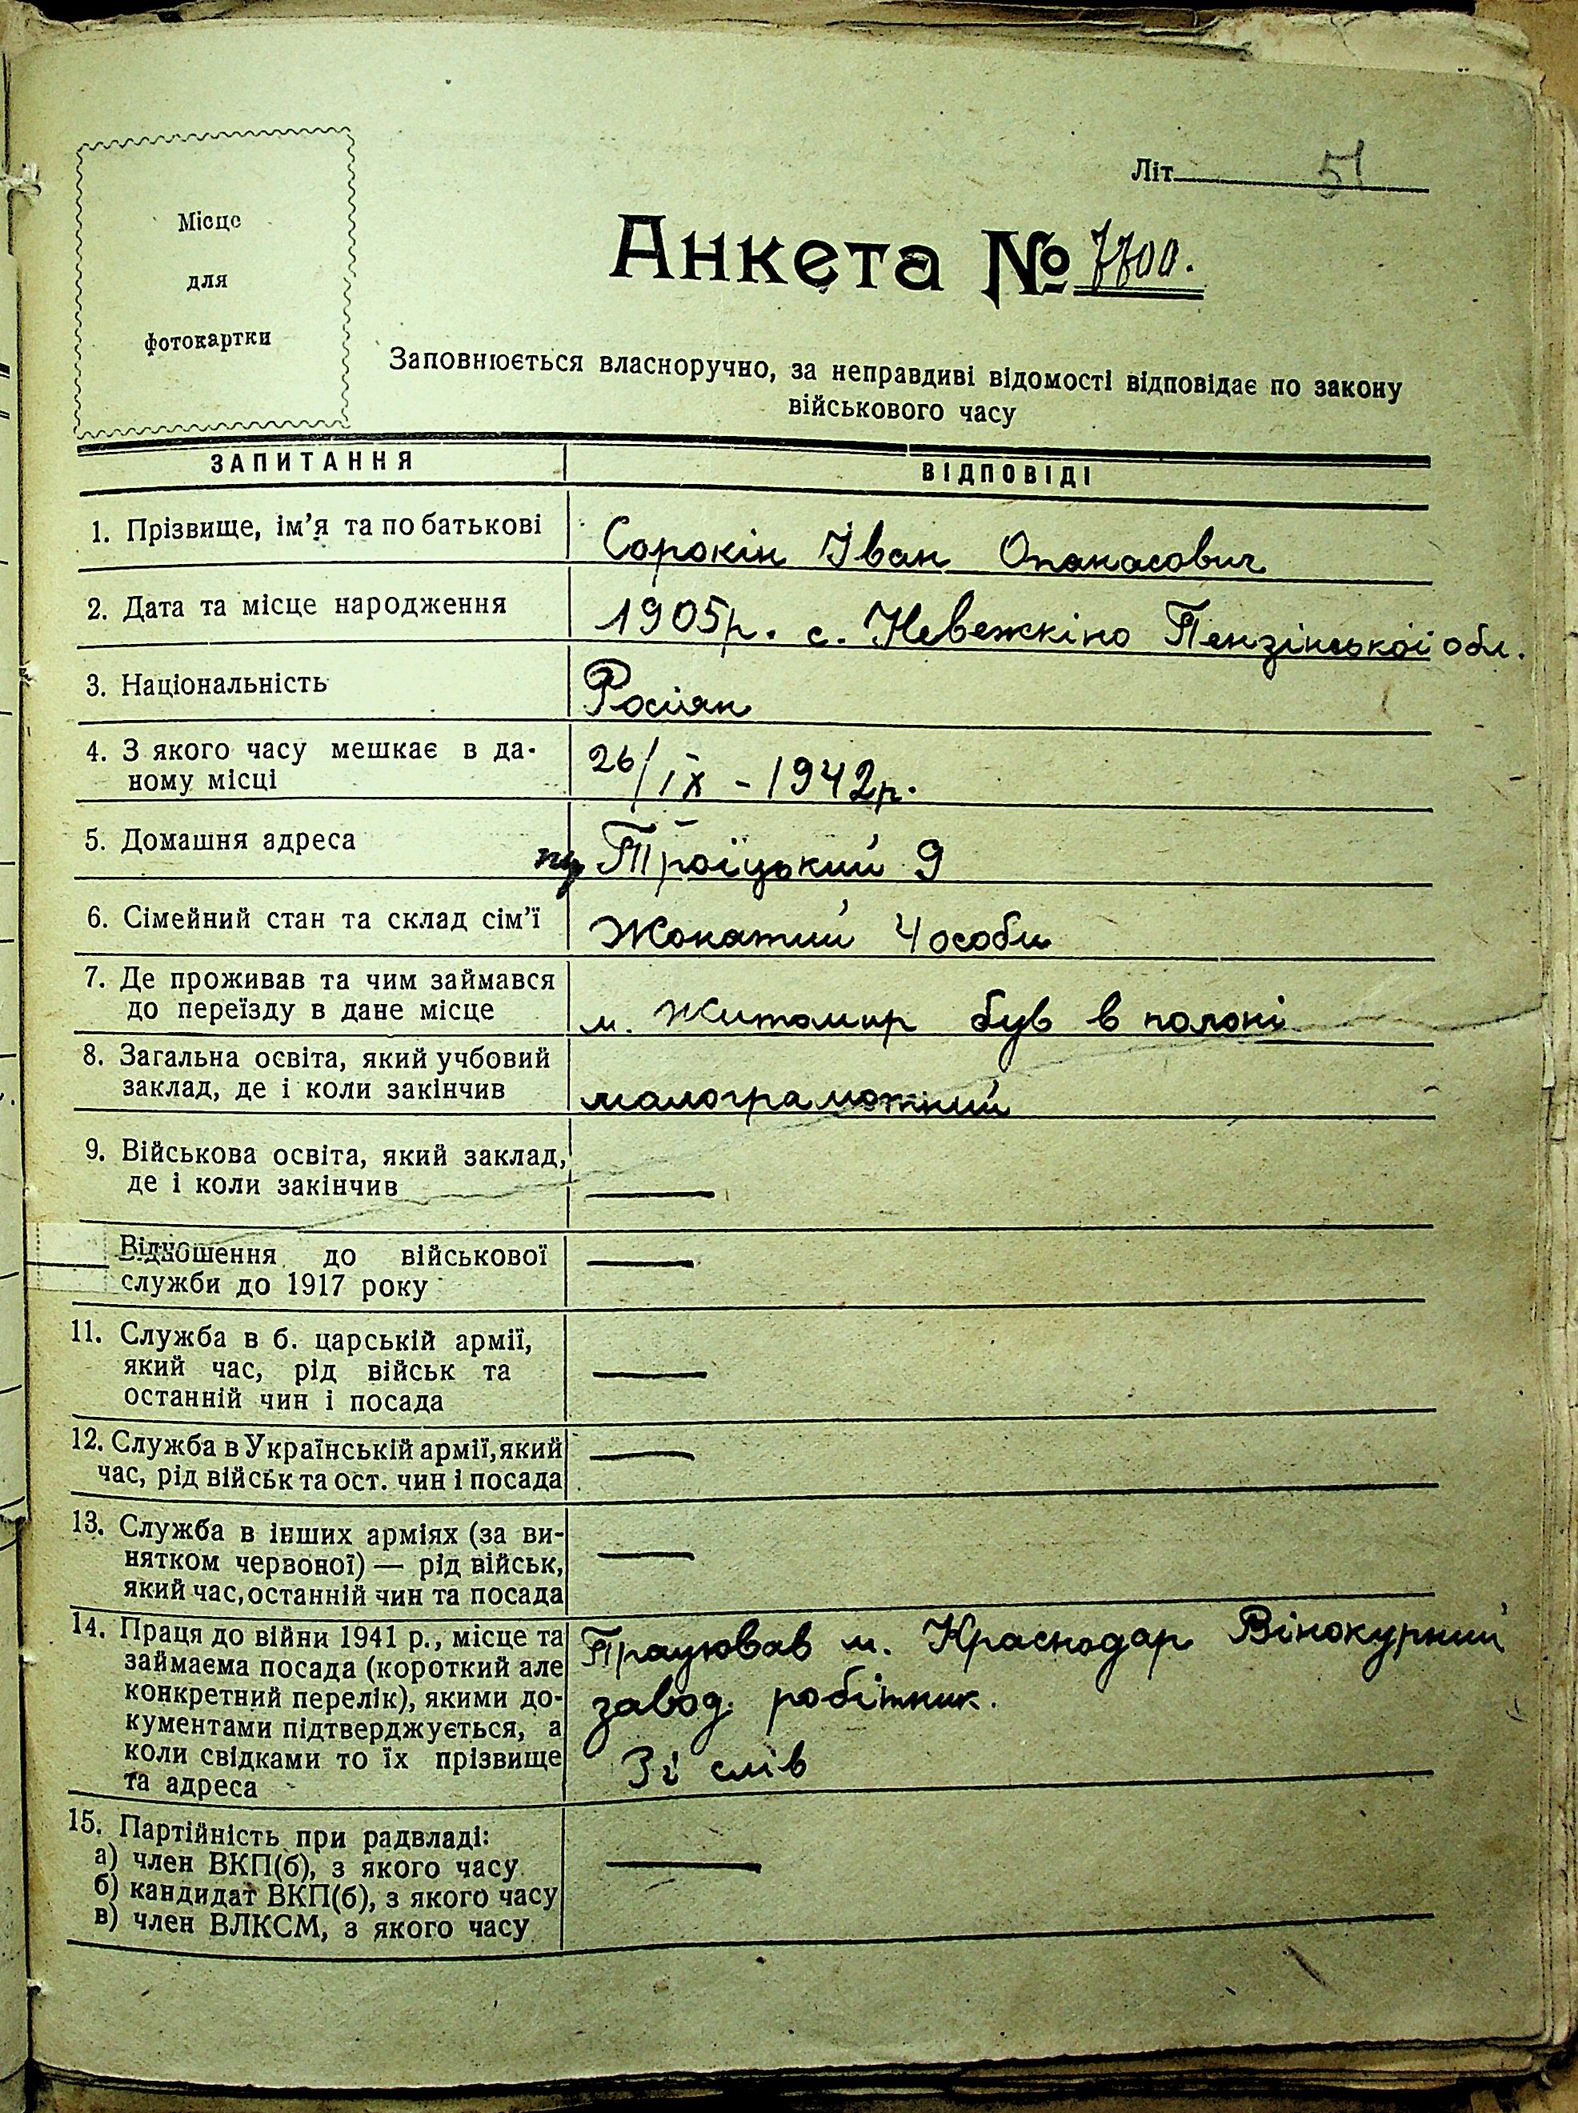 Літ. 51
Місце
для
фотокартки
Анкета № 7700.
Заповнюється власноручно, за неправдиві відомості відповідає по закону
військового часу
ЗАПИТАННЯ
ВІДПОВІДІ
1. Прізвище, ім'я та по батькові
Сорокін Іван Опанасович
2. Дата та місце народження
1905р. с. Невежкіно Пензінської обл.
3. Національність
Росіян
4. З якого часу мешкає в да-
ному місці
26/ІХ - 1942р.
5. Домашня адреса
Троїцький 9
6. Сімейний стан та склад сім'ї
Жонатий 4 особи
7. Де проживав та чим займався
до переїзду в дане місце
м. Житомир був в полоні
8. Загальна освіта, який учбовий
заклад, де і коли закінчив
малограмотний
9. Військова освіта, який заклад,
де і коли закінчив
—
Відношення до військової
служби до 1917 року
—
11. Служба в б. царській армії,
який час, рід військ та
останній чин і посада
—
12. Служба в Українській армії, який
час, рід військ та ост. чин і посада
—
13. Служба в інших арміях (за ви-
нятком червоної) — рід військ,
який час, останній чин та посада
—
14. Праця до війни 1941 р., місце та
займаєма посада (короткий але
конкретний перелік), якими до-
кументами підтверджується, а
коли свідками то їх прізвище
та адреса
Працював м. Краснодар Вінокурний
завод. робітник.
Зі слів
15. Партійність при радвладі:
а) член ВКП(б), з якого часу
б) кандидат ВКП(б), з якого часу
в) член ВЛКСМ, з якого часу
—